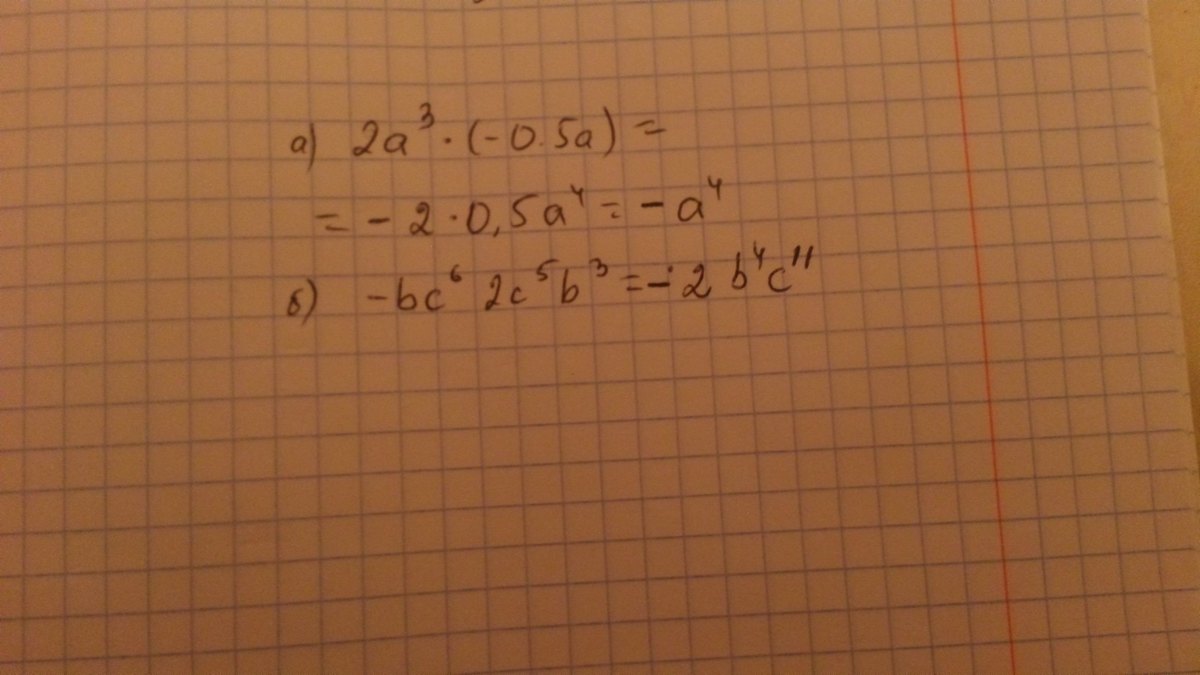 а) 2a³ · (-0.5a) =
= - 2 · 0,5a⁴ = - a⁴
б) -bc⁶ 2c⁵b³ = - 2 b⁴c¹¹